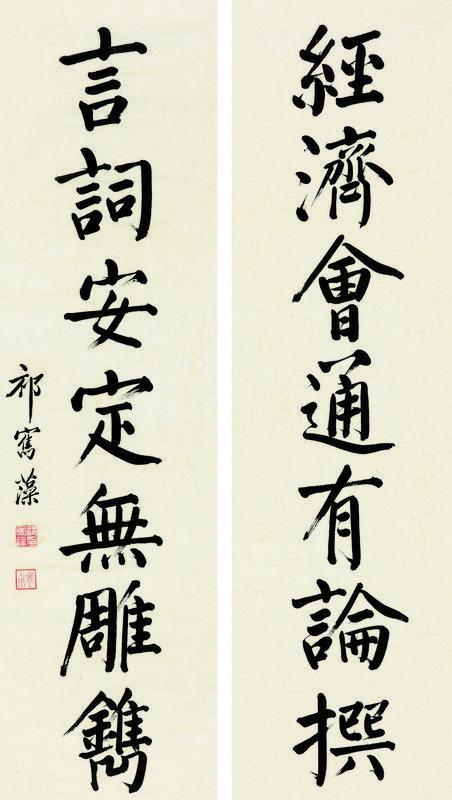 經濟會通有論撰
言詞安定無雕鐫
祁寯藻